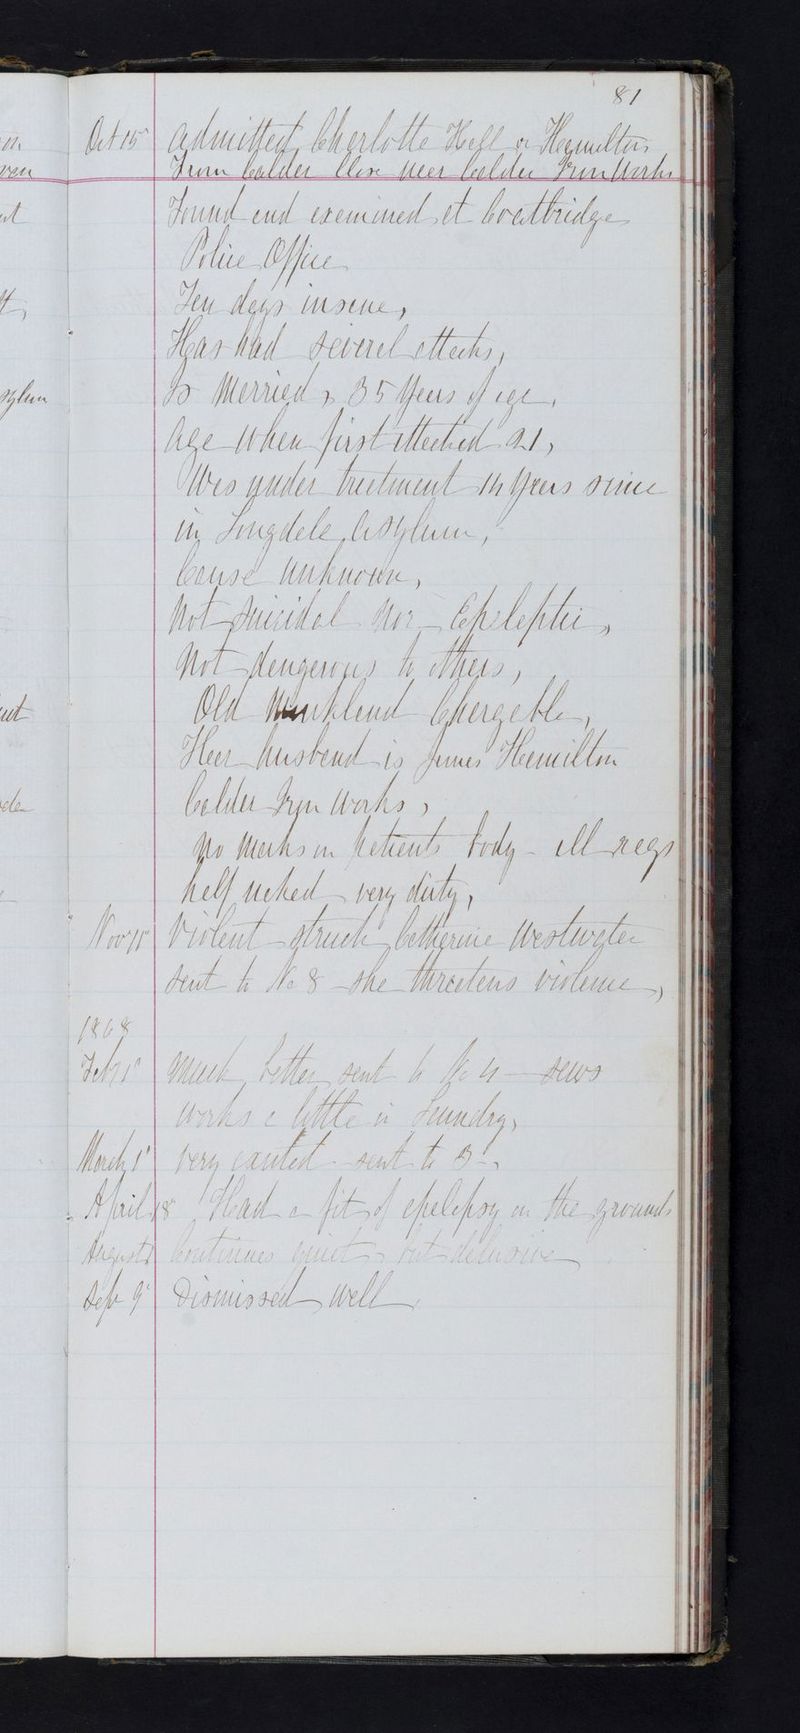 81
Oct 15 Admitted Charlotte Hall or Hamilton
From Calder Close near Calder Iron Works
Found and examined at Coatbridge
Police Office
Ten days insane,
Has had several attacks,
Is Married, 35 Years of age,
Age when first attacked 21,
Was under treatment 14 years since
in Longdale Asylum,
Cause unknown,
Not Suicidal nor Epileptic,
Not dangerous to others,
Old Monkland Chargeable,
Her husband is James Hamilton
Calder Iron Works,
No marks on patients body - all rags
half naked very dirty,
Nov 15 Violent struck Catherine Westwater
sent to No 8 - she threatens violence,
1868
Feb 1 Much better sent to No 4 - sews
works a little in Laundry,
March 1 Very excited sent to 3.
April 18 Had a fit of epilepsy on the grounds
August 1 Continues quiet but delusive
Sep 9 Dismissed Well
on
ven
at
tt,
asylum
ent
oder